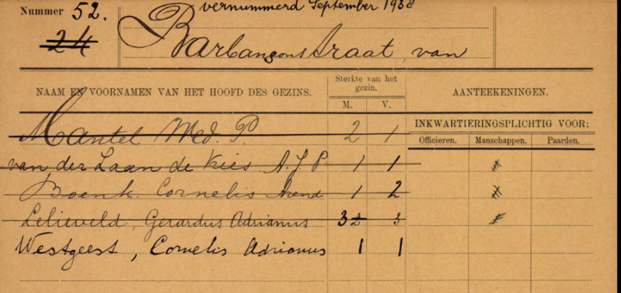 Nummer 52. vernummerd September 1938
24 Barbansonstraat, van
NAAM EN VOORNAMEN VAN HET HOOFD DES GEZINS. Sterkte van het gezin. AANTEEKENINGEN.
M. V. INKWARTIERINGSPLICHTIG VOOR:
Officieren. Manschappen. Paarden.
Mantel Wed. P 2 1
van der Laan de Vries A. J. P. 1 1 x
Boenk Cornelis Arend 1 2 x
Lelieveld, Gerardus Adrianus 3 2 3 x
Westgeest, Cornelis Adrianus 1 1